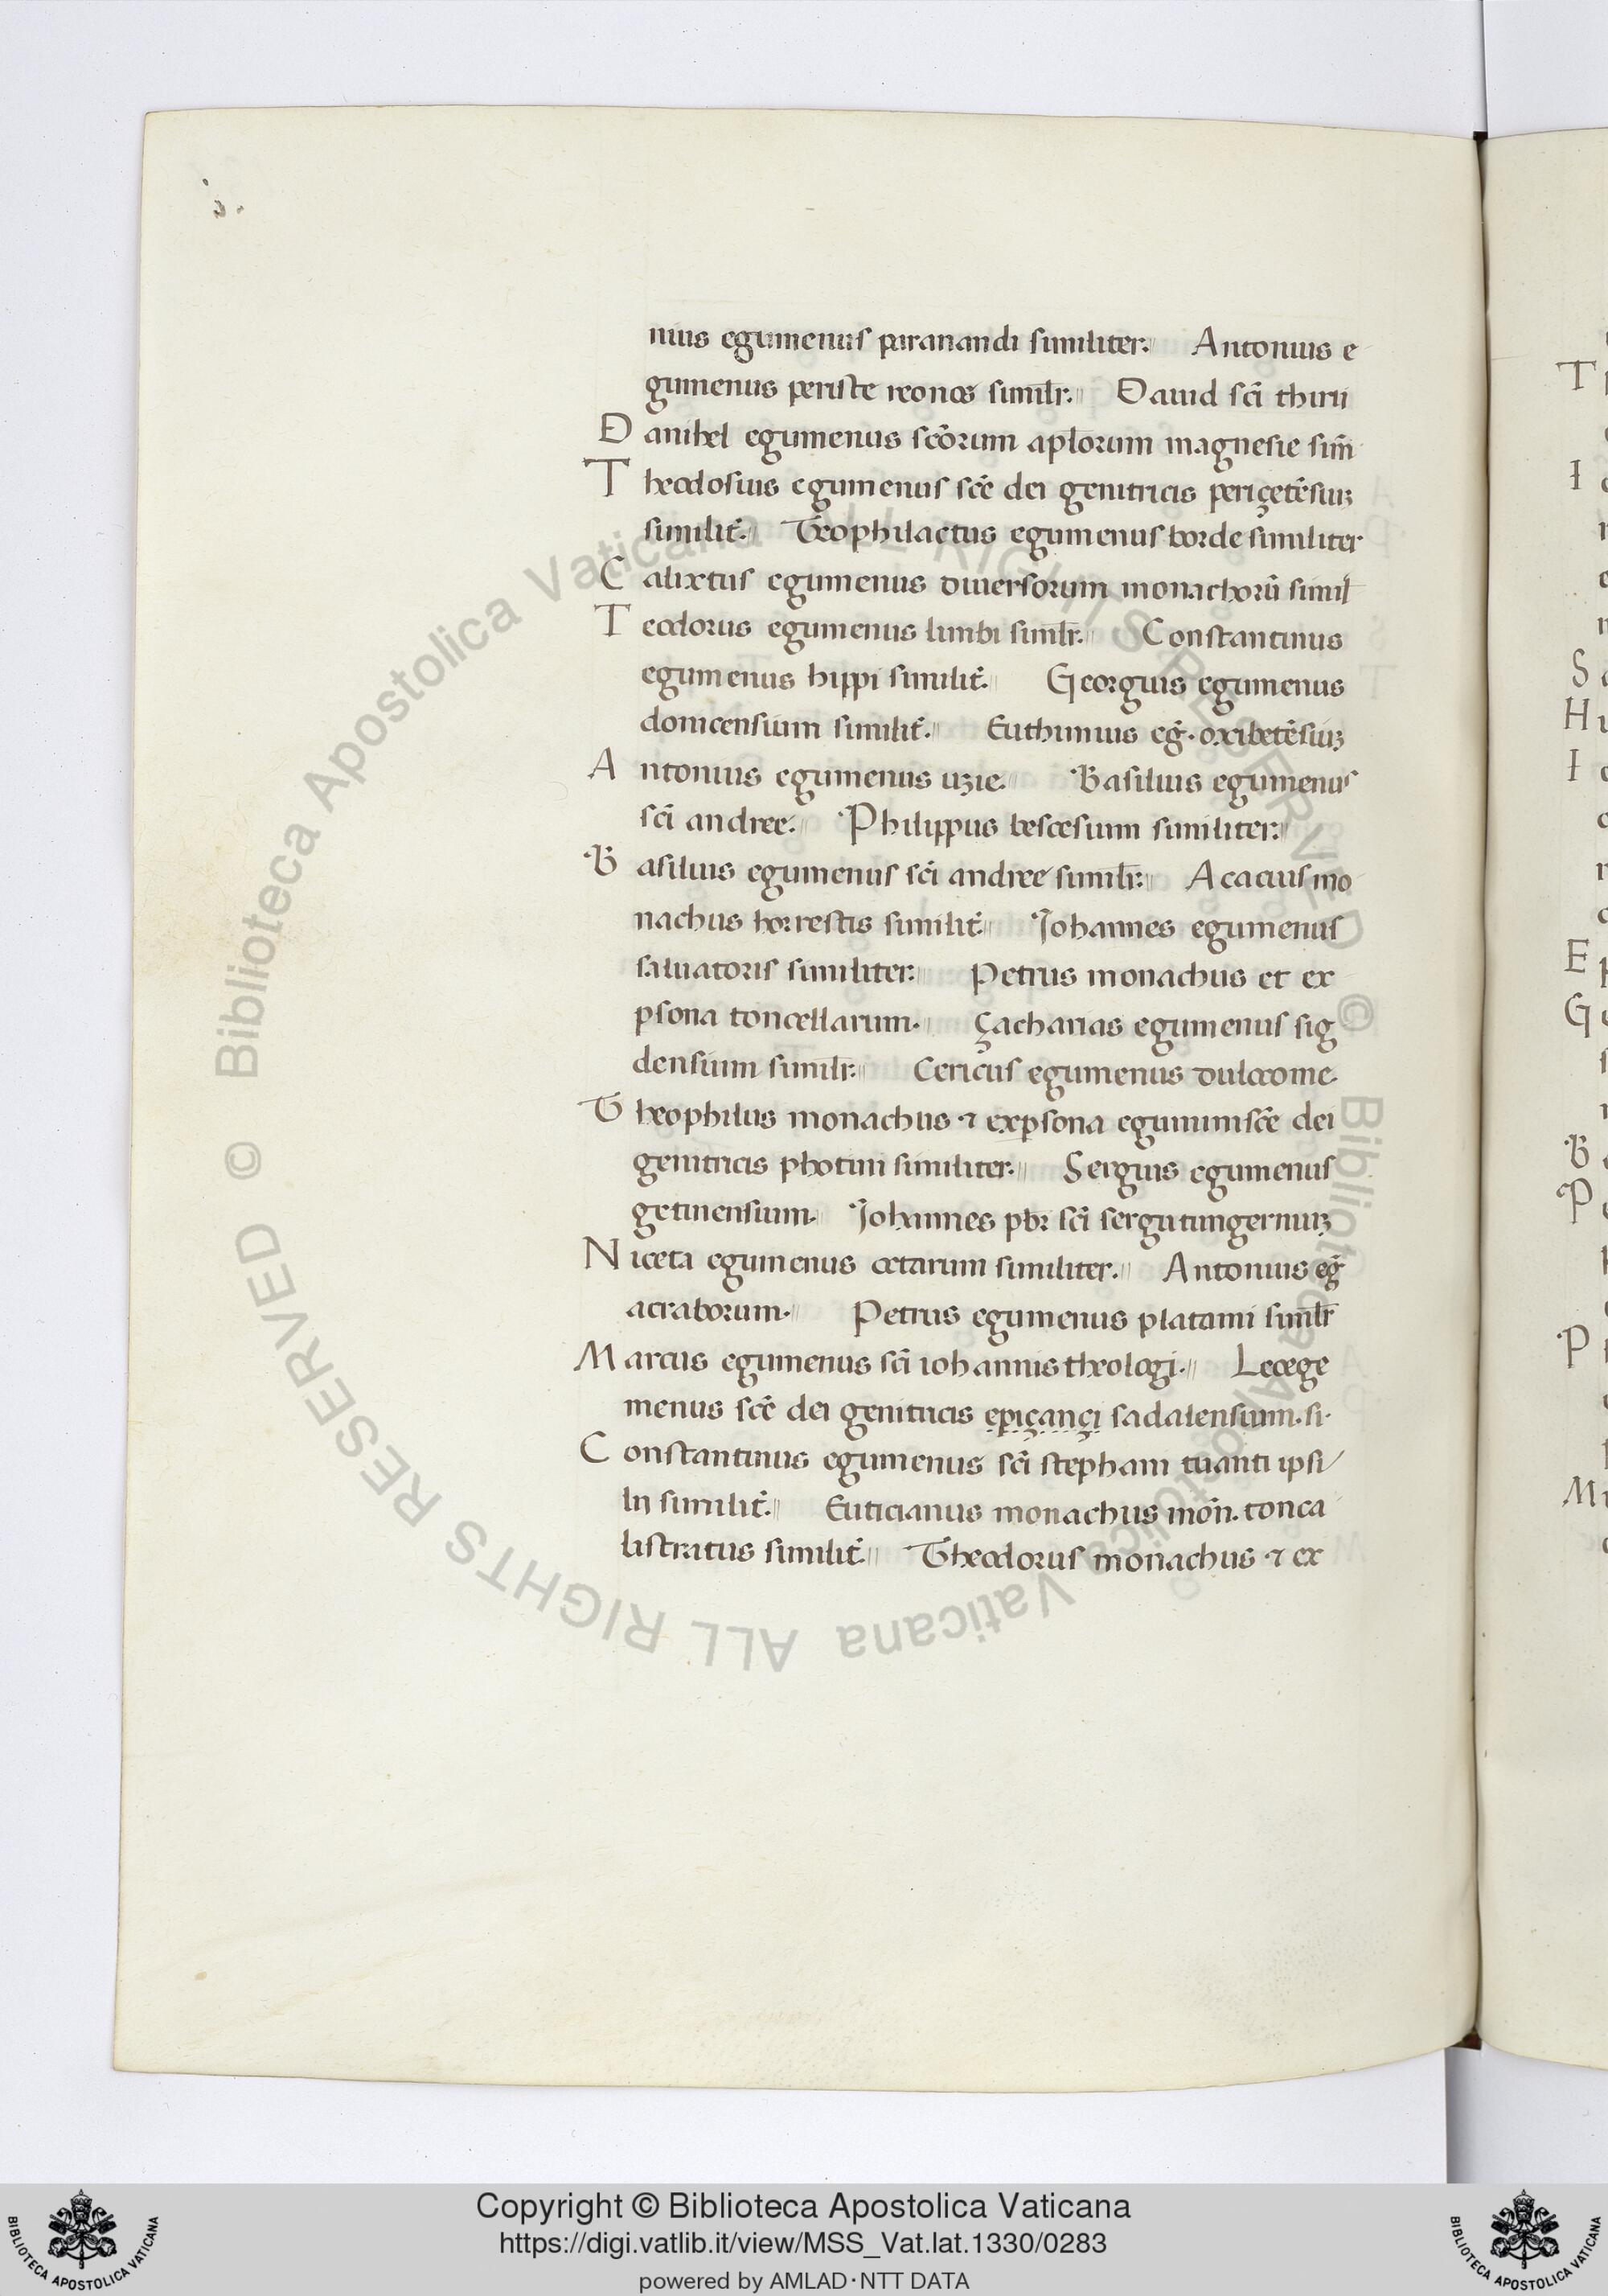 nius egumenus paranandi similiter. Antonius e
gumenus periste reonos simil̄r. Dauid sc̄i thirii
Danihel egumenus sc̄orum apl̄orum magnesie sim̄
Theodosius egumenus sc̄e dei genitricis periçetēsiuȝ
similit̄. Theophilactus egumenus borde similiter
Calixtus egumenus diuersorum monachorū simil
Teodorus egumenus limbi simil̄r. Constantinus
egumenus hippi similit̄. Georgius egumenus
donicensium similit̄. Euthimius eḡ. oxibetēsiuȝ
Antonius egumenus uzie. Basilius egumenus
sc̄i andree. Philippus bescesium similiter.
Basilius egumenus sc̄i andree simil̄r. Acacius mo
nachus horrestis similit̄. Johannes egumenus
saluatoris similiter. Petrus monachus et ex
psona toncellarum. çacharias egumenus sig
densium simil̄r. Cericus egumenus dulcome.
Theophilus monachus ⁊ expsona egumini sc̄e dei
genitricis photini similiter. Sergius egumenus
getinensium. Johannes pbr̄ sc̄i sergii tingernuiȝ
Niceta egumenus cetarum similiter. Antonius eḡ
acraborum. Petrus egumenus platani simil̄r
Marcus egumenus sc̄i iohannis theologi. Leo ege
menus sc̄e dei genitricis epiçançi sadalensium. si.
Constantinus egumenus sc̄i stephani tuanti ipsi
lij similit̄. Euticianus monachus mon̄. tonca
listratus similit̄. Theodorus monachus ⁊ ex
Copyright © Biblioteca Apostolica Vaticana
https://digi.vatlib.it/view/MSS_Vat.lat.1330/0283
powered by AMLAD·NTT DATA
BIBLIOTECA APOSTOLICA VATICANA
BIBLIOTECA APOSTOLICA VATICANA
© Biblioteca Apostolica Vaticana ALL RIGHTS RESERVED © Biblioteca Apostolica Vaticana ALL RIGHTS RESERVED